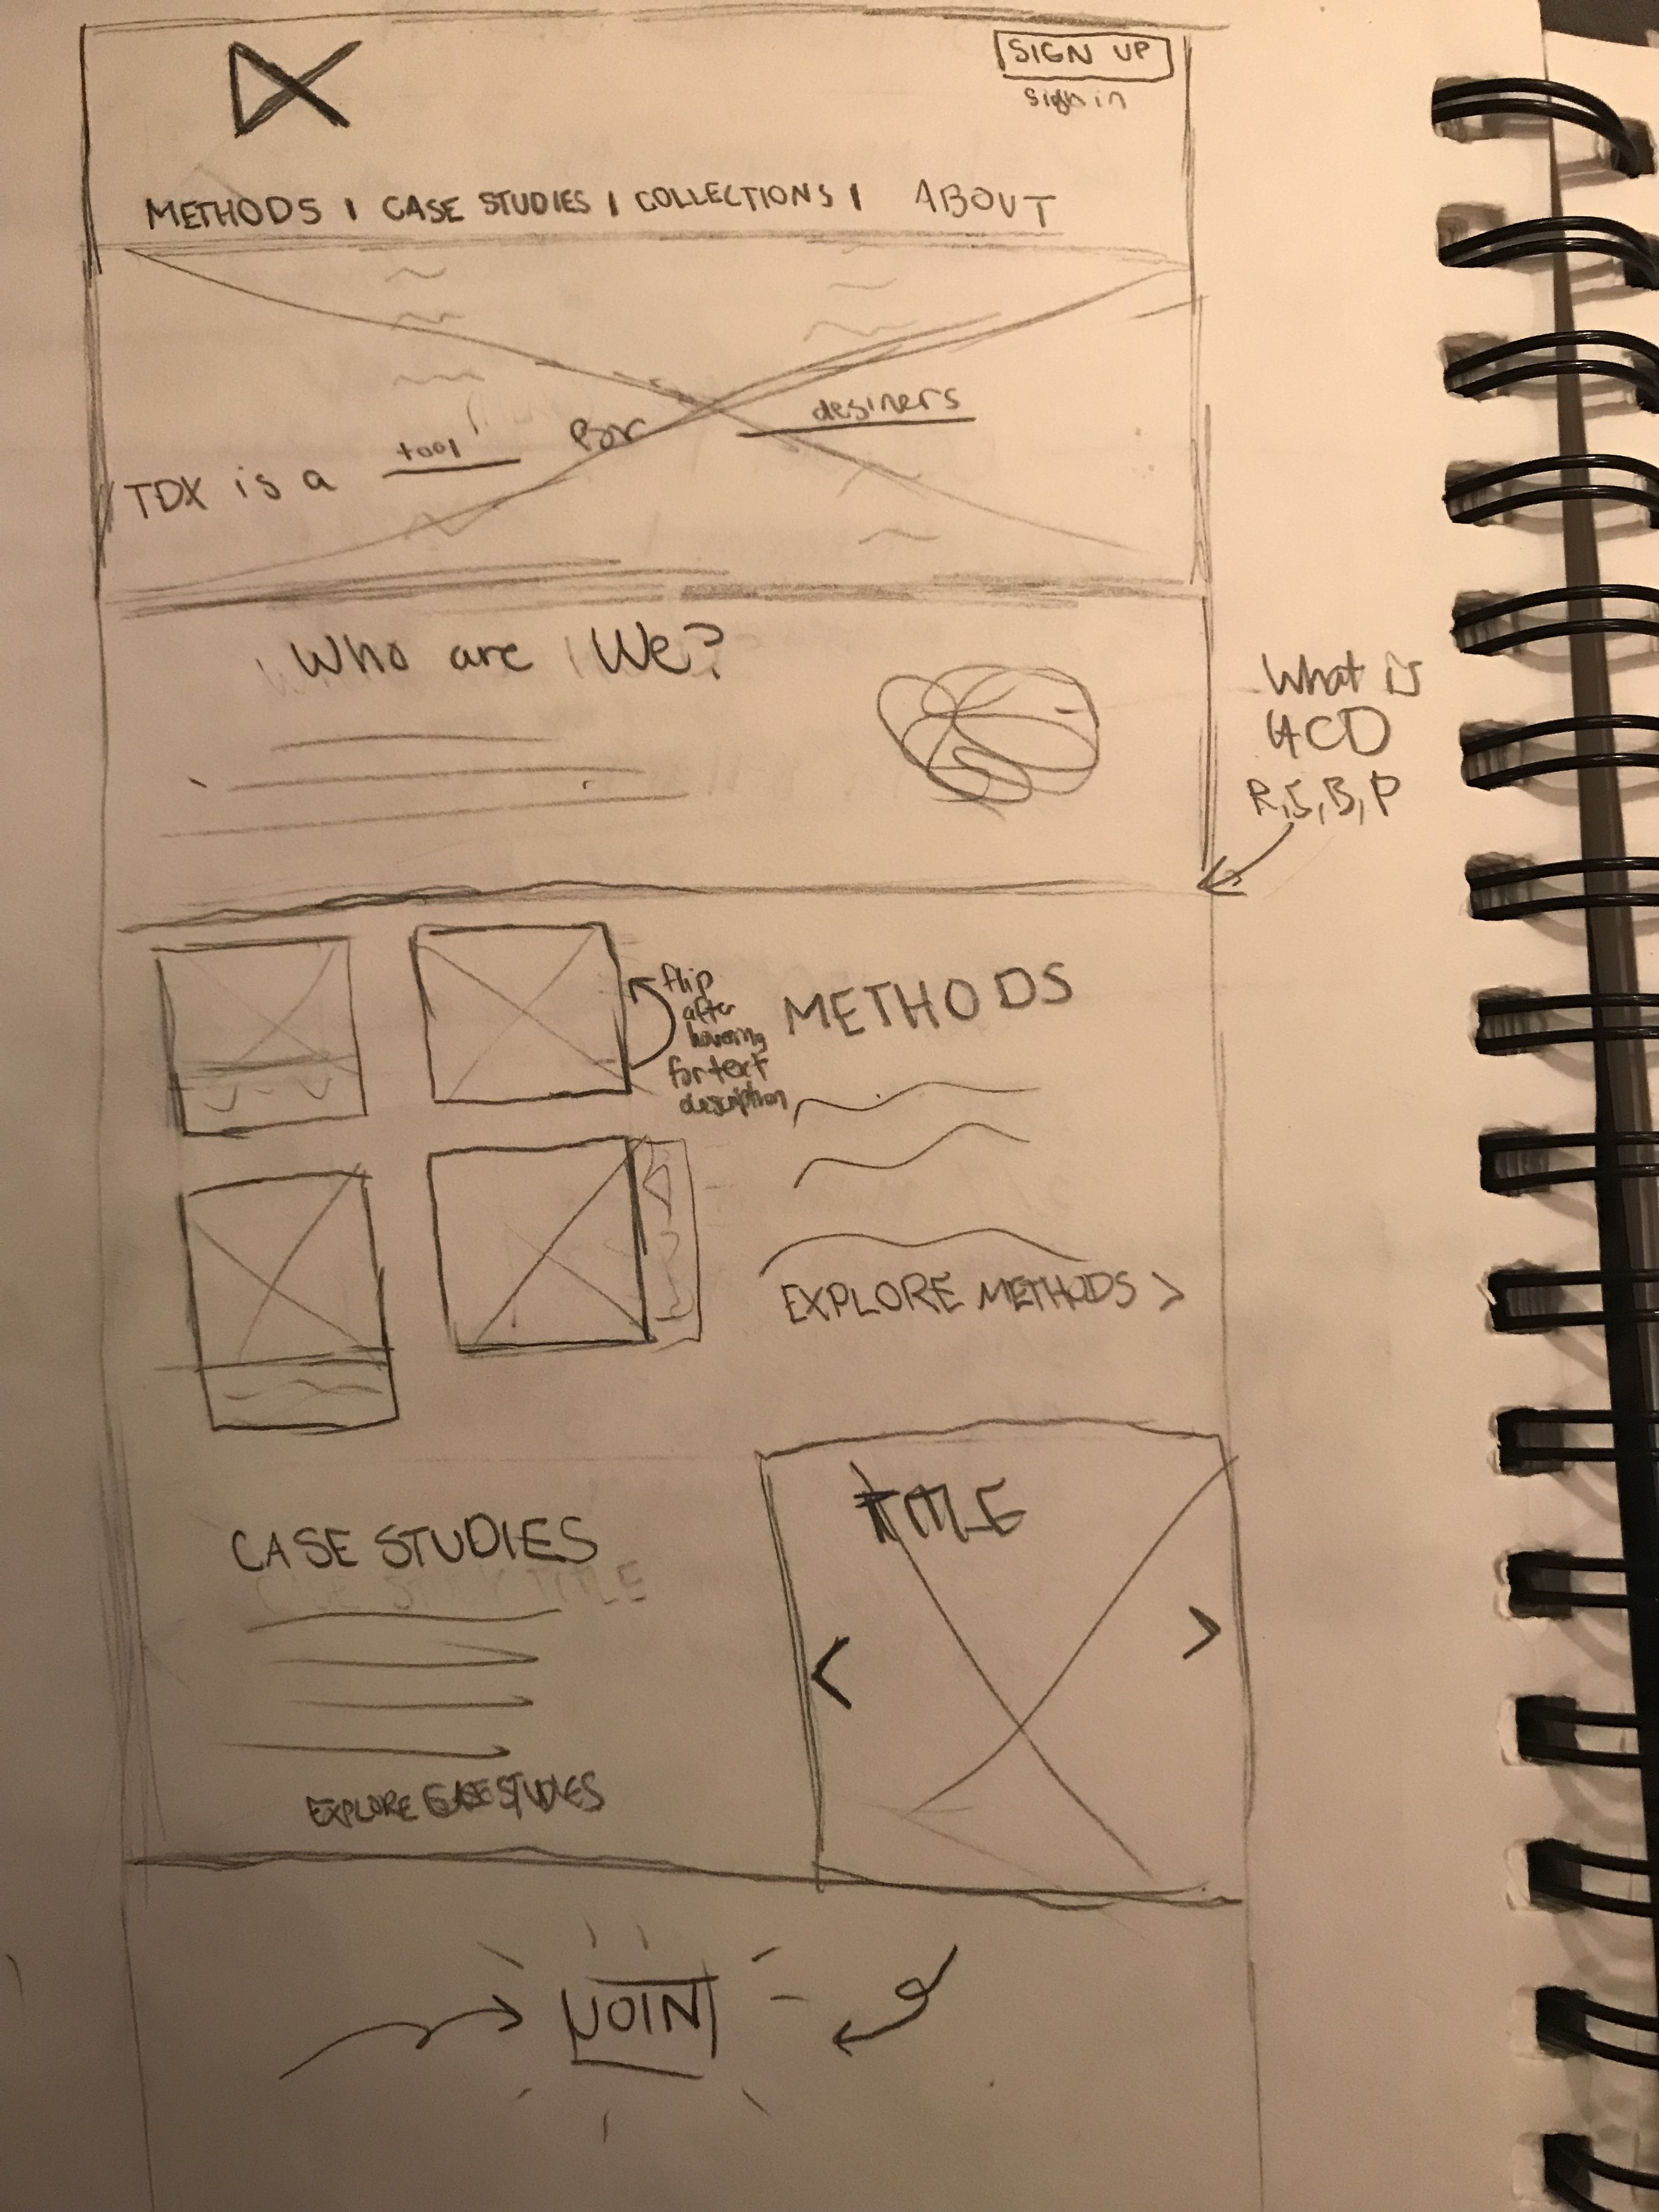 SIGN UP
sign in
METHODS | CASE STUDIES | COLLECTIONS | ABOUT
TDX is a tool for desiners
Who are We?
What is
HCD
R, S, B, P
flip
after
hovering
for text
description
METHODS
EXPLORE METHODS >
CASE STUDIES
TITLE
<
>
EXPLORE CASE STUDIES
JOIN